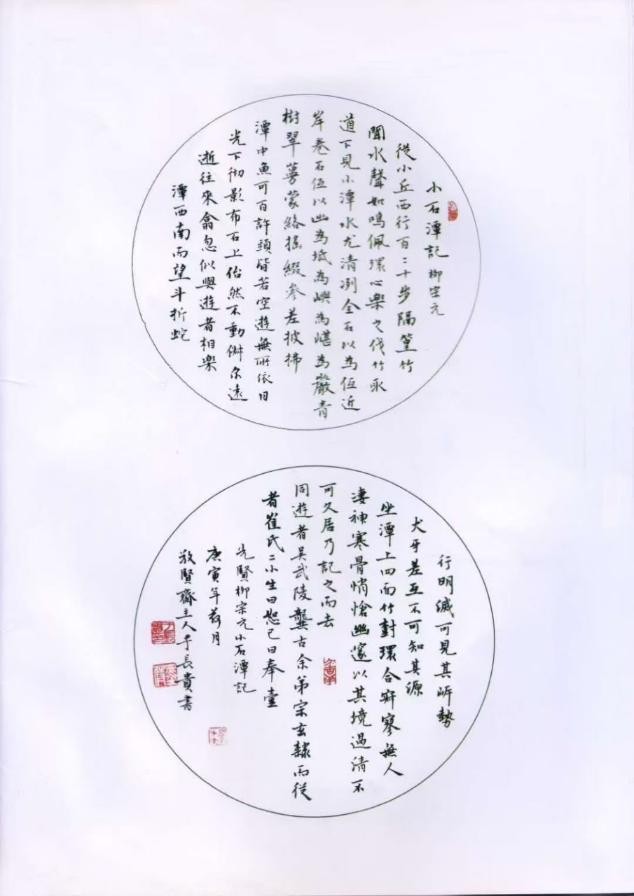 小石潭記 柳宗元
從小丘西行百二十步隔篁竹
聞水聲如鳴佩環心樂之伐竹取
道下見小潭水尤清冽全石以為底近
岸卷石底以出為坻為嶼為嵁為巖青
樹翠蔓蒙絡搖綴參差披拂
潭中魚可百許頭皆若空遊無所依日
光下徹影布石上佁然不動俶尔遠
逝往來翕忽似與遊者相樂
潭西南而望斗折蛇
行明滅可見其岸勢
犬牙差互不可知其源
坐潭上四面竹樹環合寂寥無人
凄神寒骨悄愴幽邃以其境過清不
可久居乃記之而去
同遊者吳武陵龔古余弟宗玄隸而從
者崔氏二小生曰恕己曰奉壹
先賢柳宗元小石潭記
庚寅年荷月
敬賢齋主人于長貴書